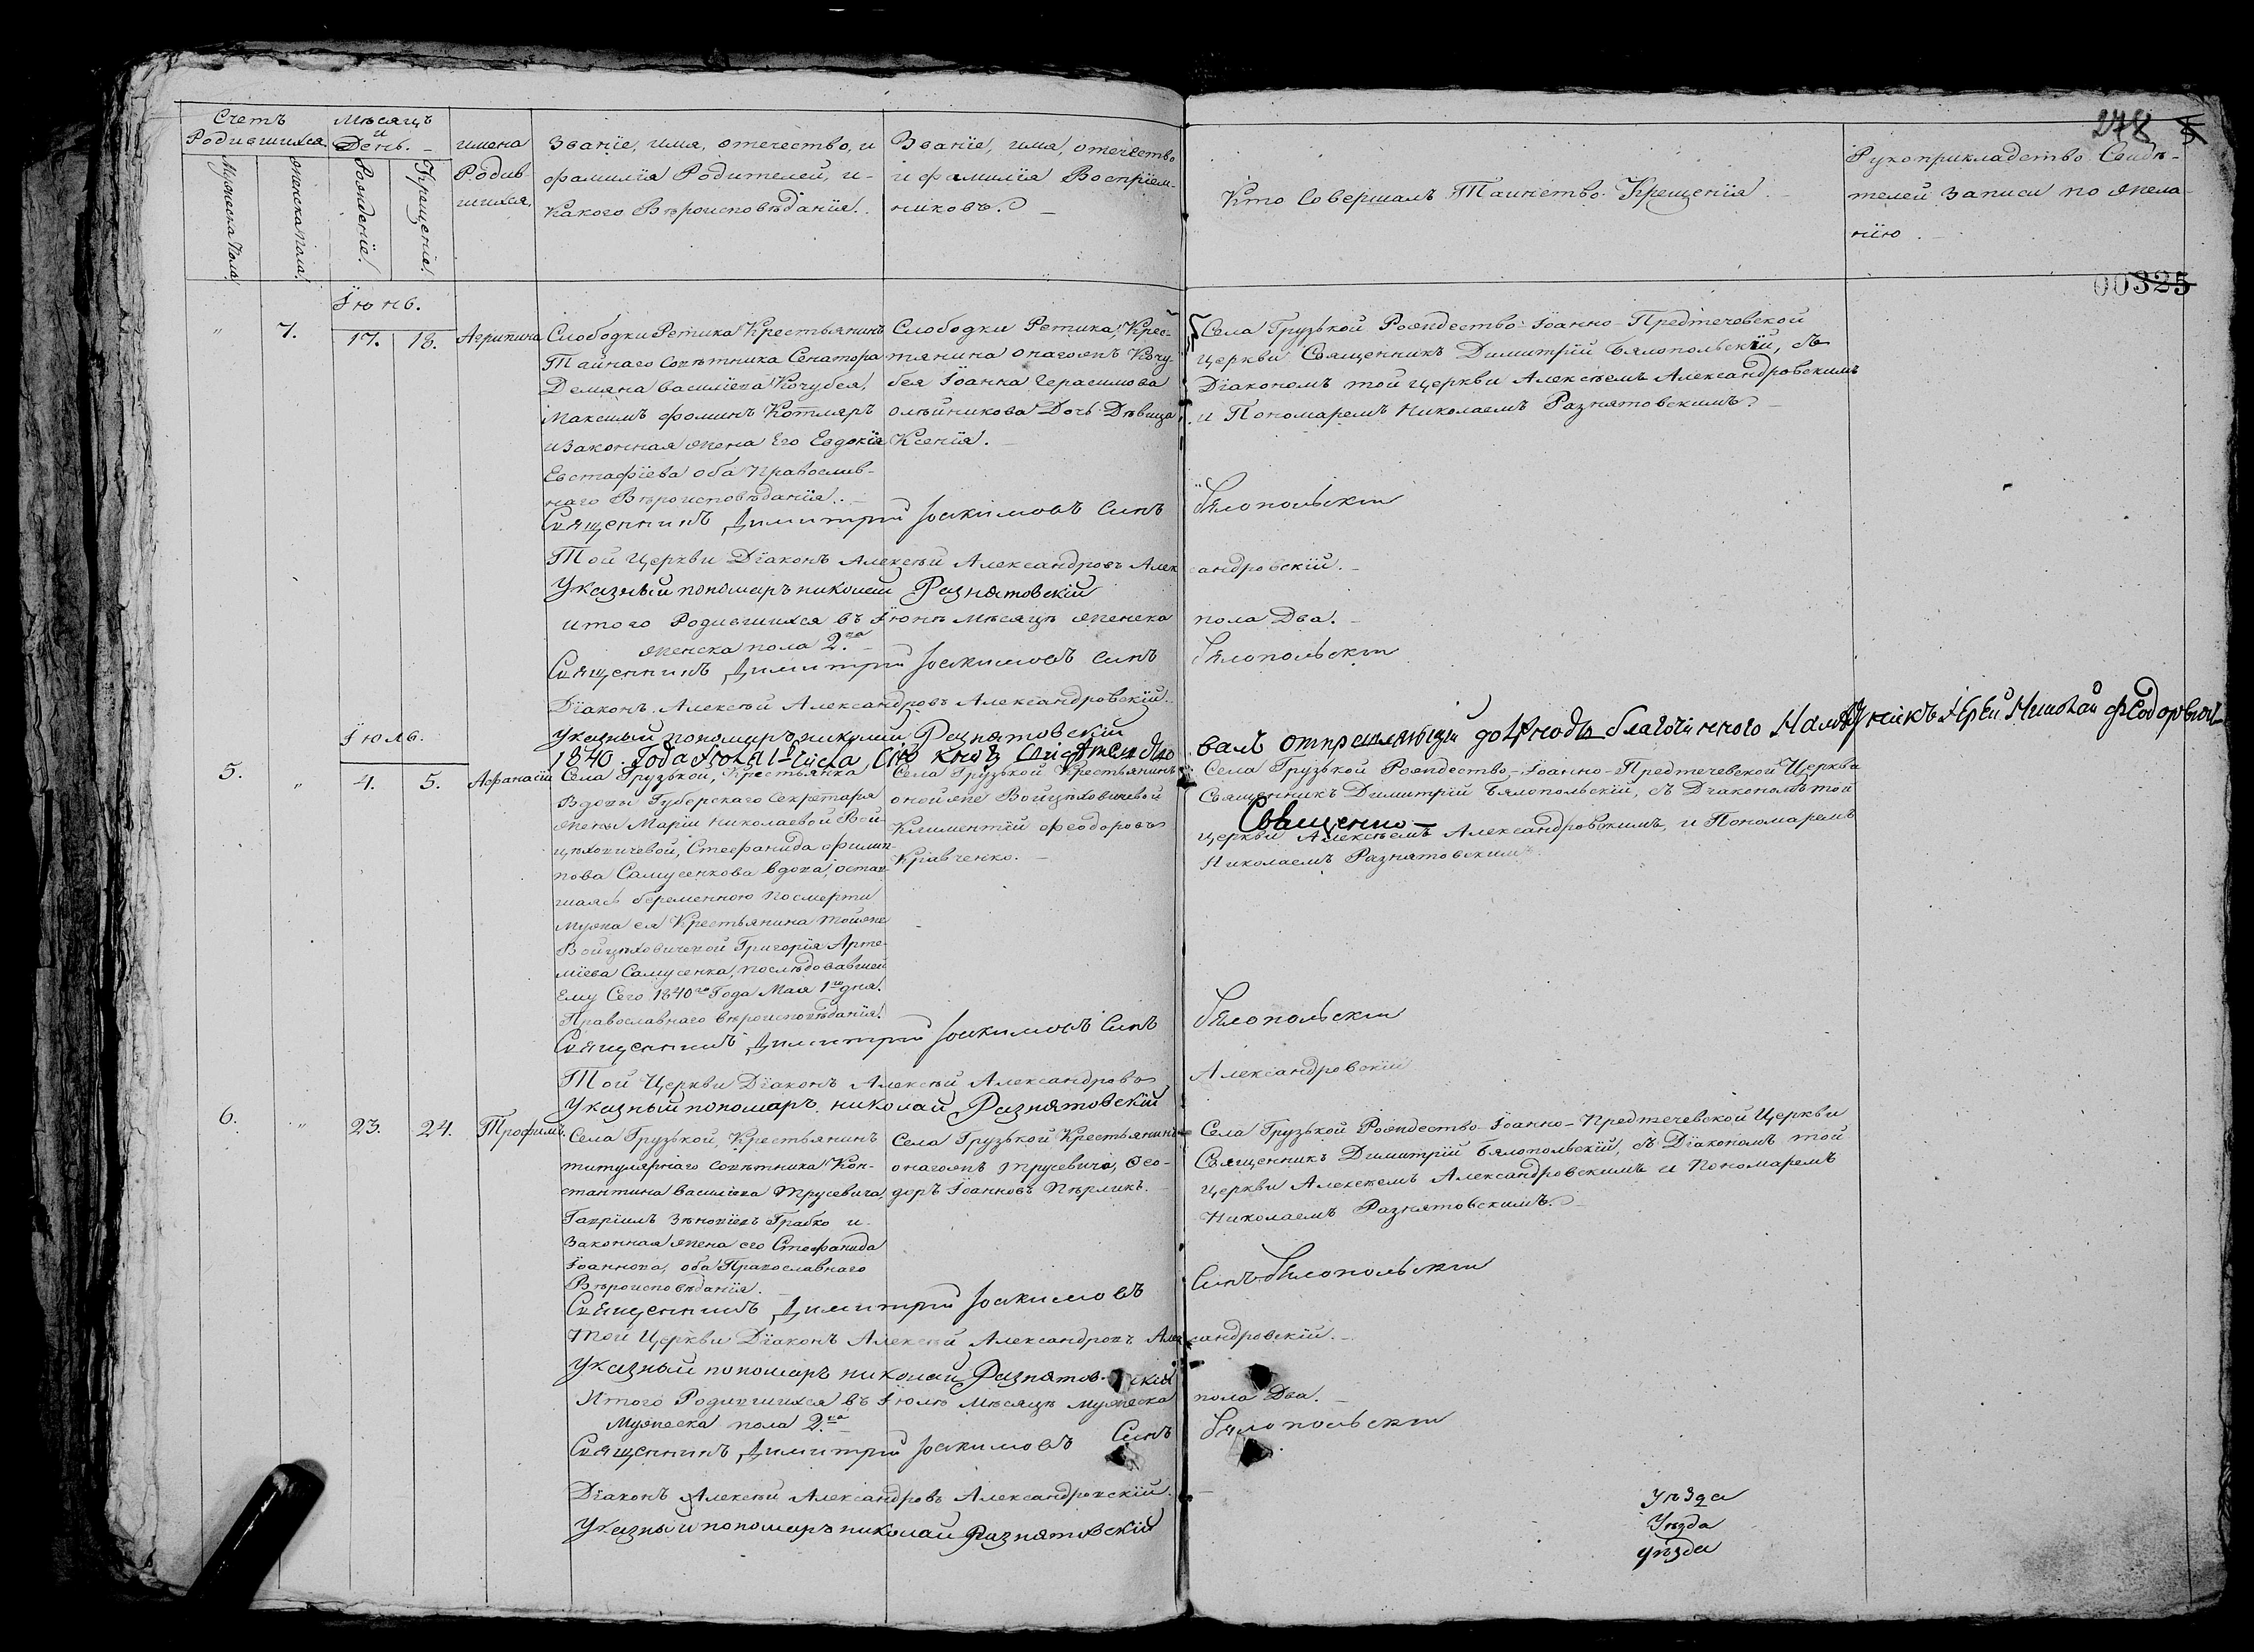 Счетъ
Родившихся
Мужеска пола.
женска пола.
Мѣсяцъ
и
День.
Рожденіе.
Крещеніе.
имена
Родив-
шихся,
Званіе, имя, отечество, и
фамилія Родителей, и-
какого Вѣроисповѣданія.
Званіе, имя, отечество
и фамилія Воспріем-
никовъ.
Кто Совершалъ Таинство Крещенія
Рукоприкладство Свидѣ-
телей записи по жела-
нію.
278
00325
Іюнь.
" 7. 17. 18. Агрипина
Слободки Ретика Крестьянинъ
Тайнаго Совѣтника Сенатора
Демяна Васильева Кочубея,
Максимъ Фоминъ Котляръ
и Законная жена Его Евдокія
Евстафіева оба Православ-
наго Вѣроисповѣданія.
Слободки Ретика, Крес-
тянина онагожъ Кочу-
бея Іоанна Герасимова
олѣйникова Дочь Дѣвица
Ксенія.
Села Грузькой Рождество-Іоанно-Предтечовской
церкви Священникъ Димитрій Бялопольскій, съ
Діакономъ той церкви Алексѣемъ Александровскимъ
и Пономаремъ Николаемъ Разнятовскимъ.
Священникъ Димитрій Іоакимовъ Синъ Бялопольскій
Той Церкви Діаконъ Алексѣй Александровъ Александровскій.
Указный пономаръ николай Разнятовскій
итого Родившихся въ Іюнѣ мѣсяцѣ женска пола Два.
женска пола 2.ва
Священникъ Димитрій Іоакимовъ Синъ Бялопольскій
Діаконъ Алексѣй Александровъ Александровскій.
Указный пономаръ николай Разнятовскій
1840. Года Іюля 1 Числа, Сію Книгу Свидѣтельство
валъ благочинного Іерей Николай Федоровичъ
Священно
Іюль.
5. " 4. 5. Афанасій
Села Грузькой, Крестьянка
Вдовы Губерскаго Секретаря
жены Маріи Николаевой Вой-
цѣховичевой, Стефанида Филип-
пова Самусенкова вдова, остав-
шаясь беременною по смерти
мужа ея Крестьянина тойже
Войцѣховичевой Григорія Арте-
міева Самусенка, послѣдовавшей
Ему Сего 1840го Года Мая 1го дня.
Православнаго вѣроисповѣданія.
Села Грузькой Крестьянинъ
оной же Войцѣховичевой
Климентій Феодоровъ
Кравченко.
Села Грузькой Рождество-Іоанно-Предтечевской Церкви
Священникъ Димитрій Бялопольскій, съ Діакономъ той
церкви Алексѣемъ Александровскимъ, и Пономаремъ
Николаемъ Разнятовскимъ.
Священникъ Димитрій Іоакимовъ Синъ Бялопольскій
Той Церкви Діаконъ Алексѣй Александровъ Александровскій
Указный пономаръ николай Разнятовскій
6. " 23. 24. Трофимъ.
Села Грузькой, Крестьянинъ
титулярнаго совѣтника Кон-
стантина Васильева Трусевича,
Гавріилъ Зѣновіевъ Грабко и
Законная жена его Стефанида
Іоаннова, оба Православнаго
Вѣроисповѣданія.
Села Грузькой Крестьянинъ
онагожъ Трусевича, Фео-
доръ Іоанновъ Пѣрликъ.
Села Грузькой Рождество-Іоанно-Предтечевской Церкви
Священникъ Димитрій Бялопольскій, съ Діакономъ той
церкви Алексѣемъ Александровскимъ и Пономаремъ
Николаемъ Разнятовскимъ.
Священникъ Димитрій Іоакимовъ Синъ Бялопольскій
Той Церкви Діаконъ Алексѣй Александровъ Александровскій.
Указный пономаръ николай Разнятовскій
Итого Родившихся въ Іюлю Мѣсяцѣ мужеска пола Два.
Мужеска пола 2.ва
Священникъ Димитрій Іоакимовъ Синъ Бялопольскій
Діаконъ Алексѣй Александровъ Александровскій.
Указный пономаръ николай Разнятовскій
Уѣзда
Уѣзда
уѣзда